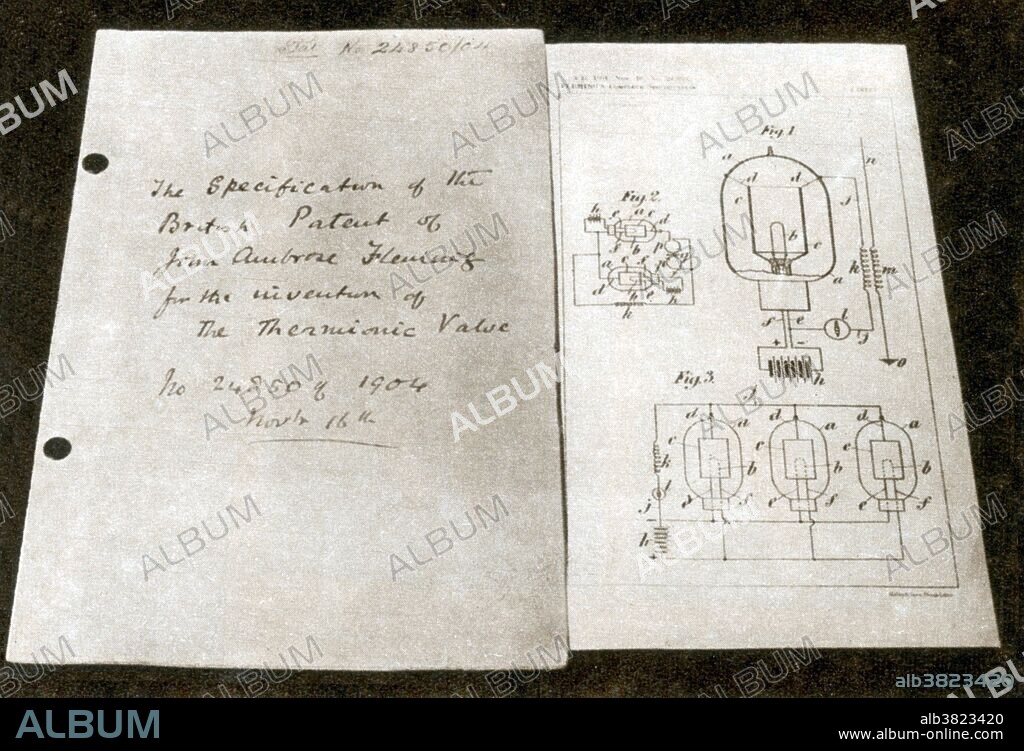 Pat No 24850/04
The Specification of the
British Patent of
John Ambrose Fleming
for the invention of
the Thermionic Valve
No 24850 of 1904
Novr 16th
FLEMING'S COMPLETE SPECIFICATION
Fig.1
a
d d
c
b
c
a
n
j
k m
f e
l
j
+ -
h
o
Fig.2.
Fig.3.
j
d a
c
b
e f
d a
c
b
e f
d a
c
b
e f
k
l
j
-
h
+
ALBUM
alb3823420
ALBUM
alb3823420
www.album-online.com